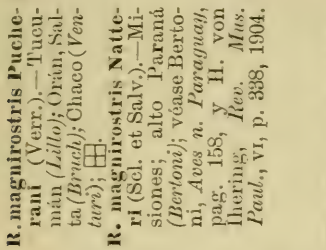 R. magnirostris Puche-
rani (Verr.).—Tucu-
mán (Lillo); Orán, Sal-
ta (Bruch); Chaco (Ven-
turi); ⊞.
R. magnirostris Natte-
ri (Scl. et Salv.).—Mi-
siones; alto Paraná
(Bertoni); véase Berto-
ni, Aves n. Paraguay,
pag. 158, y H. von
Ihering, Rev. Mus.
Paul., VI, p. 338, 1904.